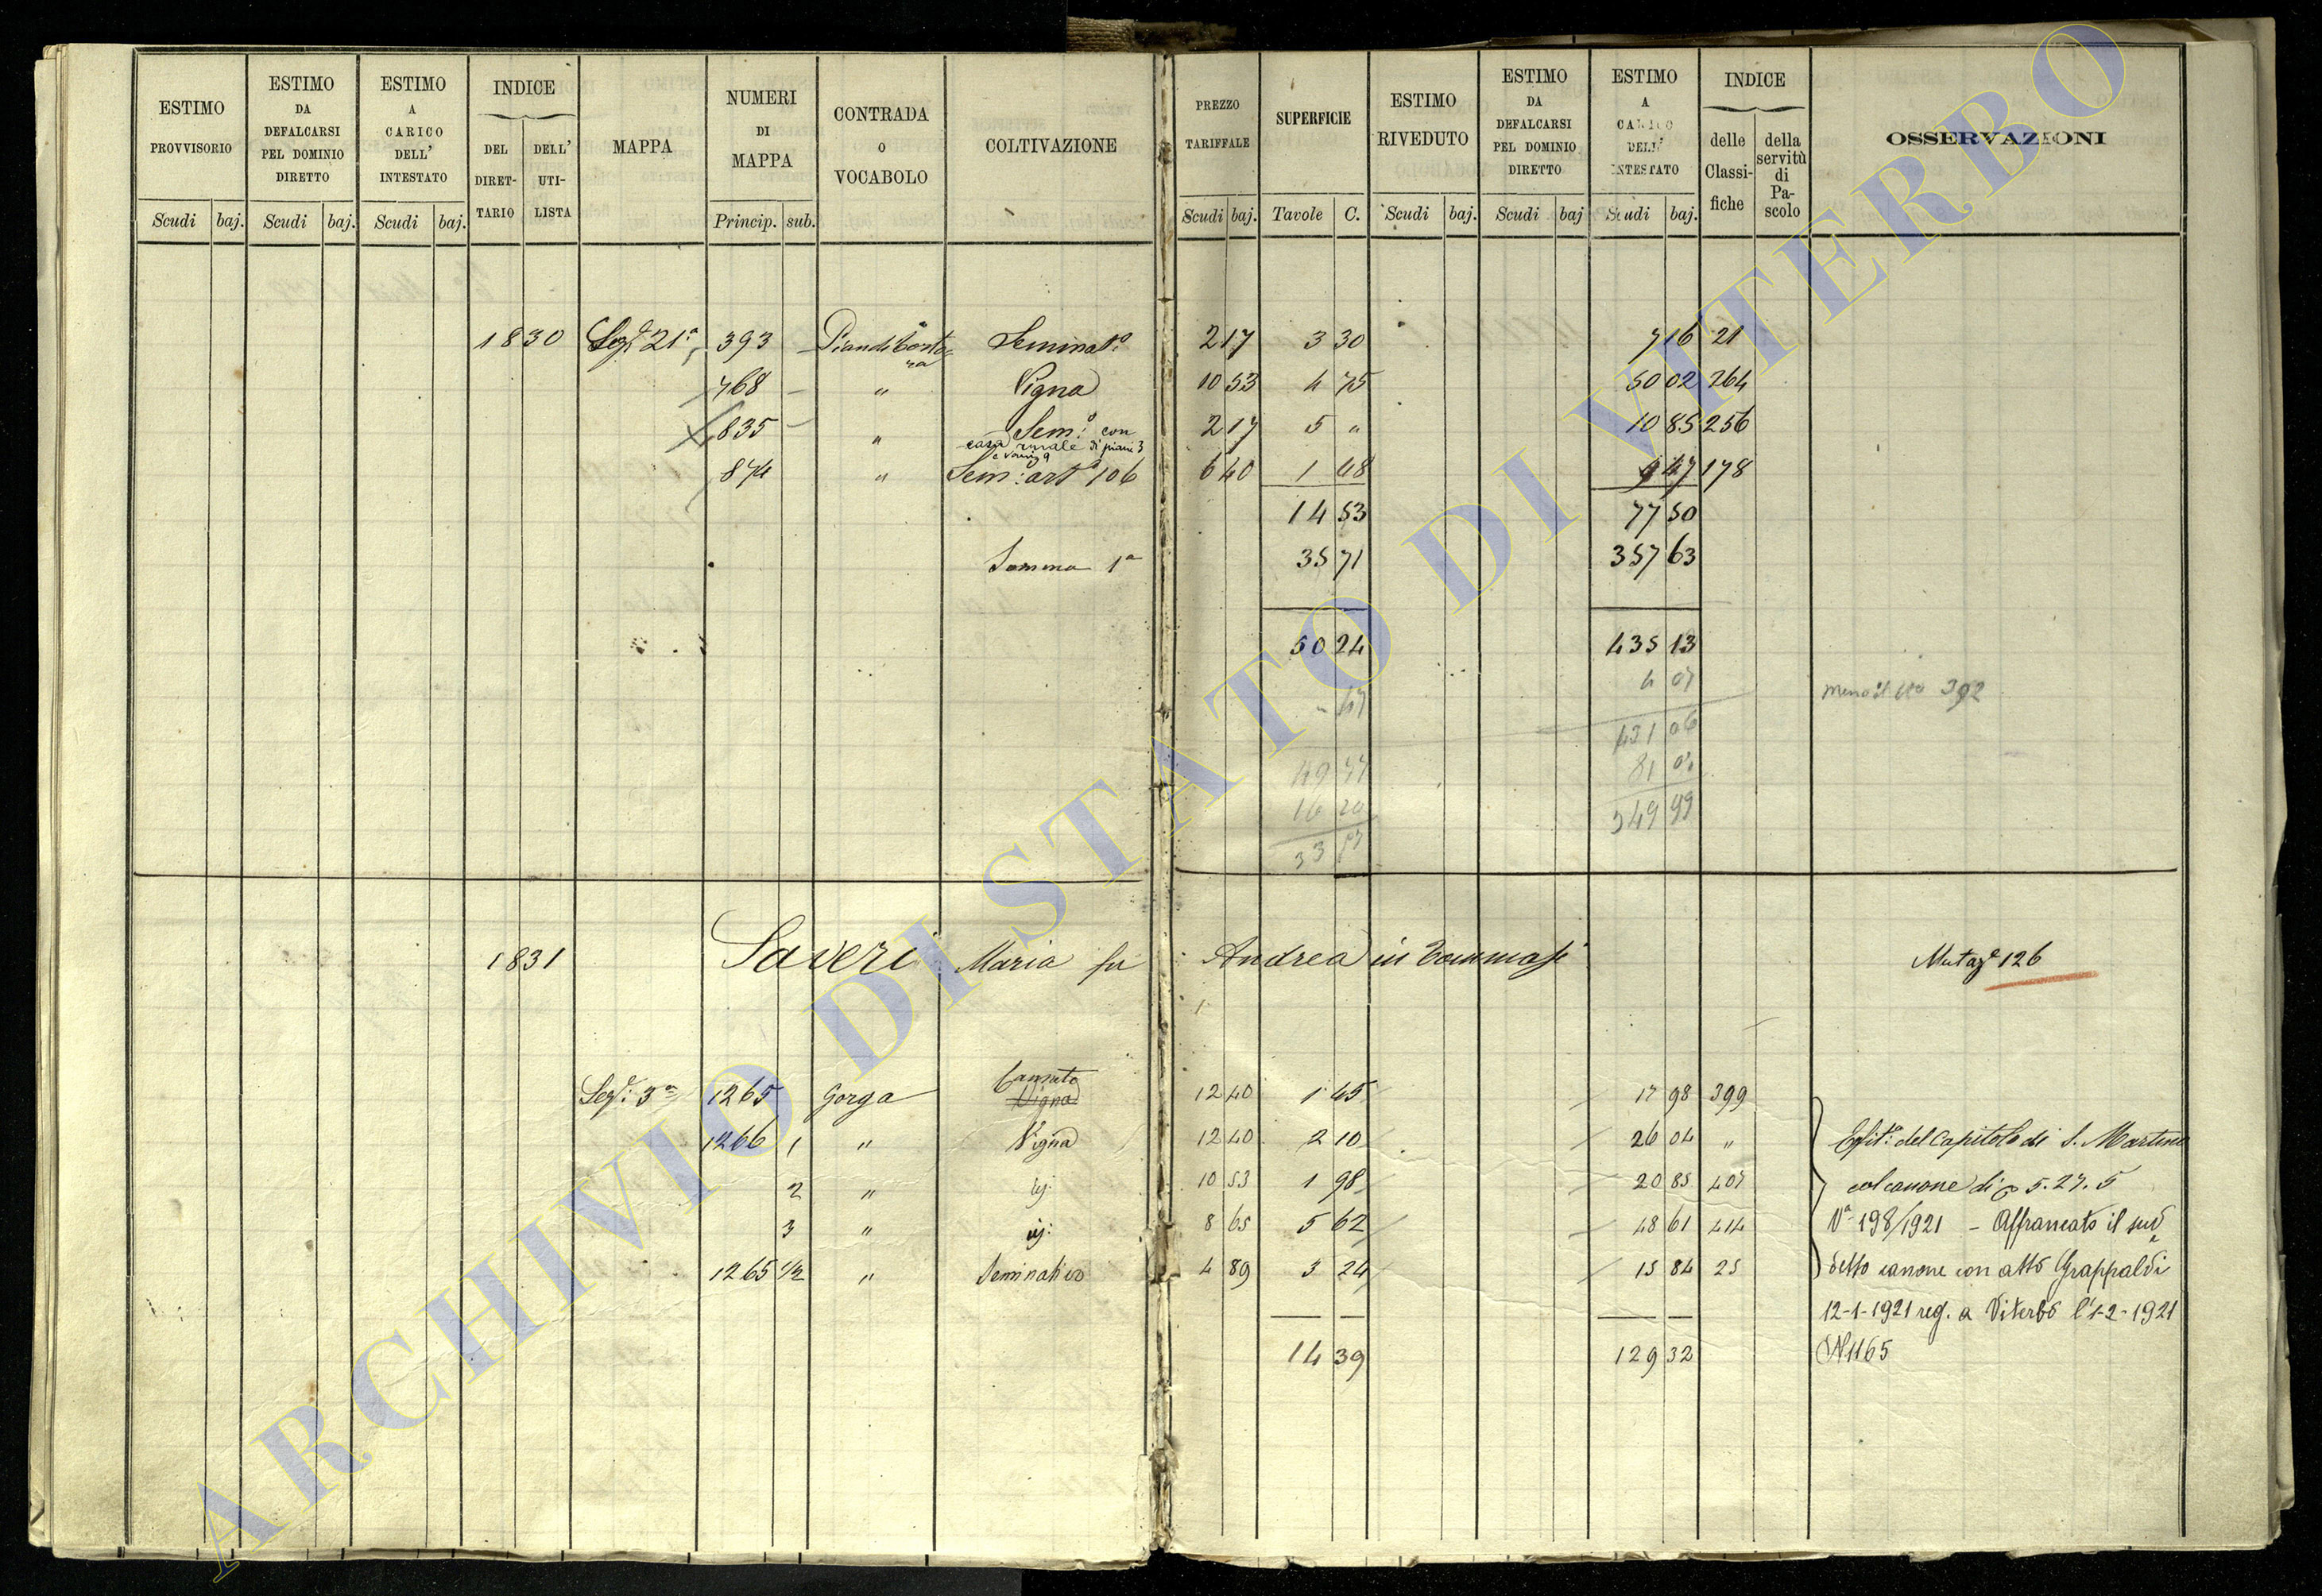 ESTIMO PROVVISORIO
ESTIMO DA DEFALCARSI PEL DOMINIO DIRETTO
ESTIMO A CARICO DELL' INTESTATO
INDICE
DEL DIRET-TARIO
DELL' UTI-LISTA
MAPPA
NUMERI DI MAPPA
CONTRADA O VOCABOLO
COLTIVAZIONE
PREZZO TARIFFALE
SUPERFICIE
ESTIMO RIVEDUTO
ESTIMO DA DEFALCARSI PEL DOMINIO DIRETTO
ESTIMO A CARICO DELL' INTESTATO
INDICE
delle Classi-fiche
della servitù di Pa-scolo
OSSERVAZIONI
Scudi baj. Scudi baj. Scudi baj. Princip. sub. Scudi baj. Tavole C. Scudi baj. Scudi baj Scudi baj.
1830 Sez.e 21a 393 Seminat.o 2 17 3 30 7 16 21
768 " Vigna 10 53 4 75 50 02 264
835 " Sem.o con 2 17 5 " 10 85 256
casa rurale di piani 3
e vani 9
874 " Sem: art.o 106 6 40 1 48 9 47 178
14 53 77 50
Somma 1a 35 71 357 63
50 24 435 13
- 47 4 07 meno il No 392
431 06
49 77 81 07
16 20 349 99
33 57
1831 Saveri Maria fu Andrea in Tommasi Mutaze 126
Sez.e 3a 1265 Gorga Canneto 12 40 1 45 17 98 399
Vigna
1266 1 " Vigna 12 40 2 10 26 04 " Enfit: del Capitolo di S. Martino
2 " id: 10 53 1 98 20 85 407 col canone di 5.27.5
3 " id: 8 65 5 62 48 61 414 Va 198/1921 - Affrancato il sud
1265 1/2 " Seminativo 4 89 3 24 15 84 25 detto canone con atto Grappaldi
12-1-1921 reg. a Viterbo l'1-2-1921
14 39 129 32 N 1165
ARCHIVIO DI STATO DI VITERBO